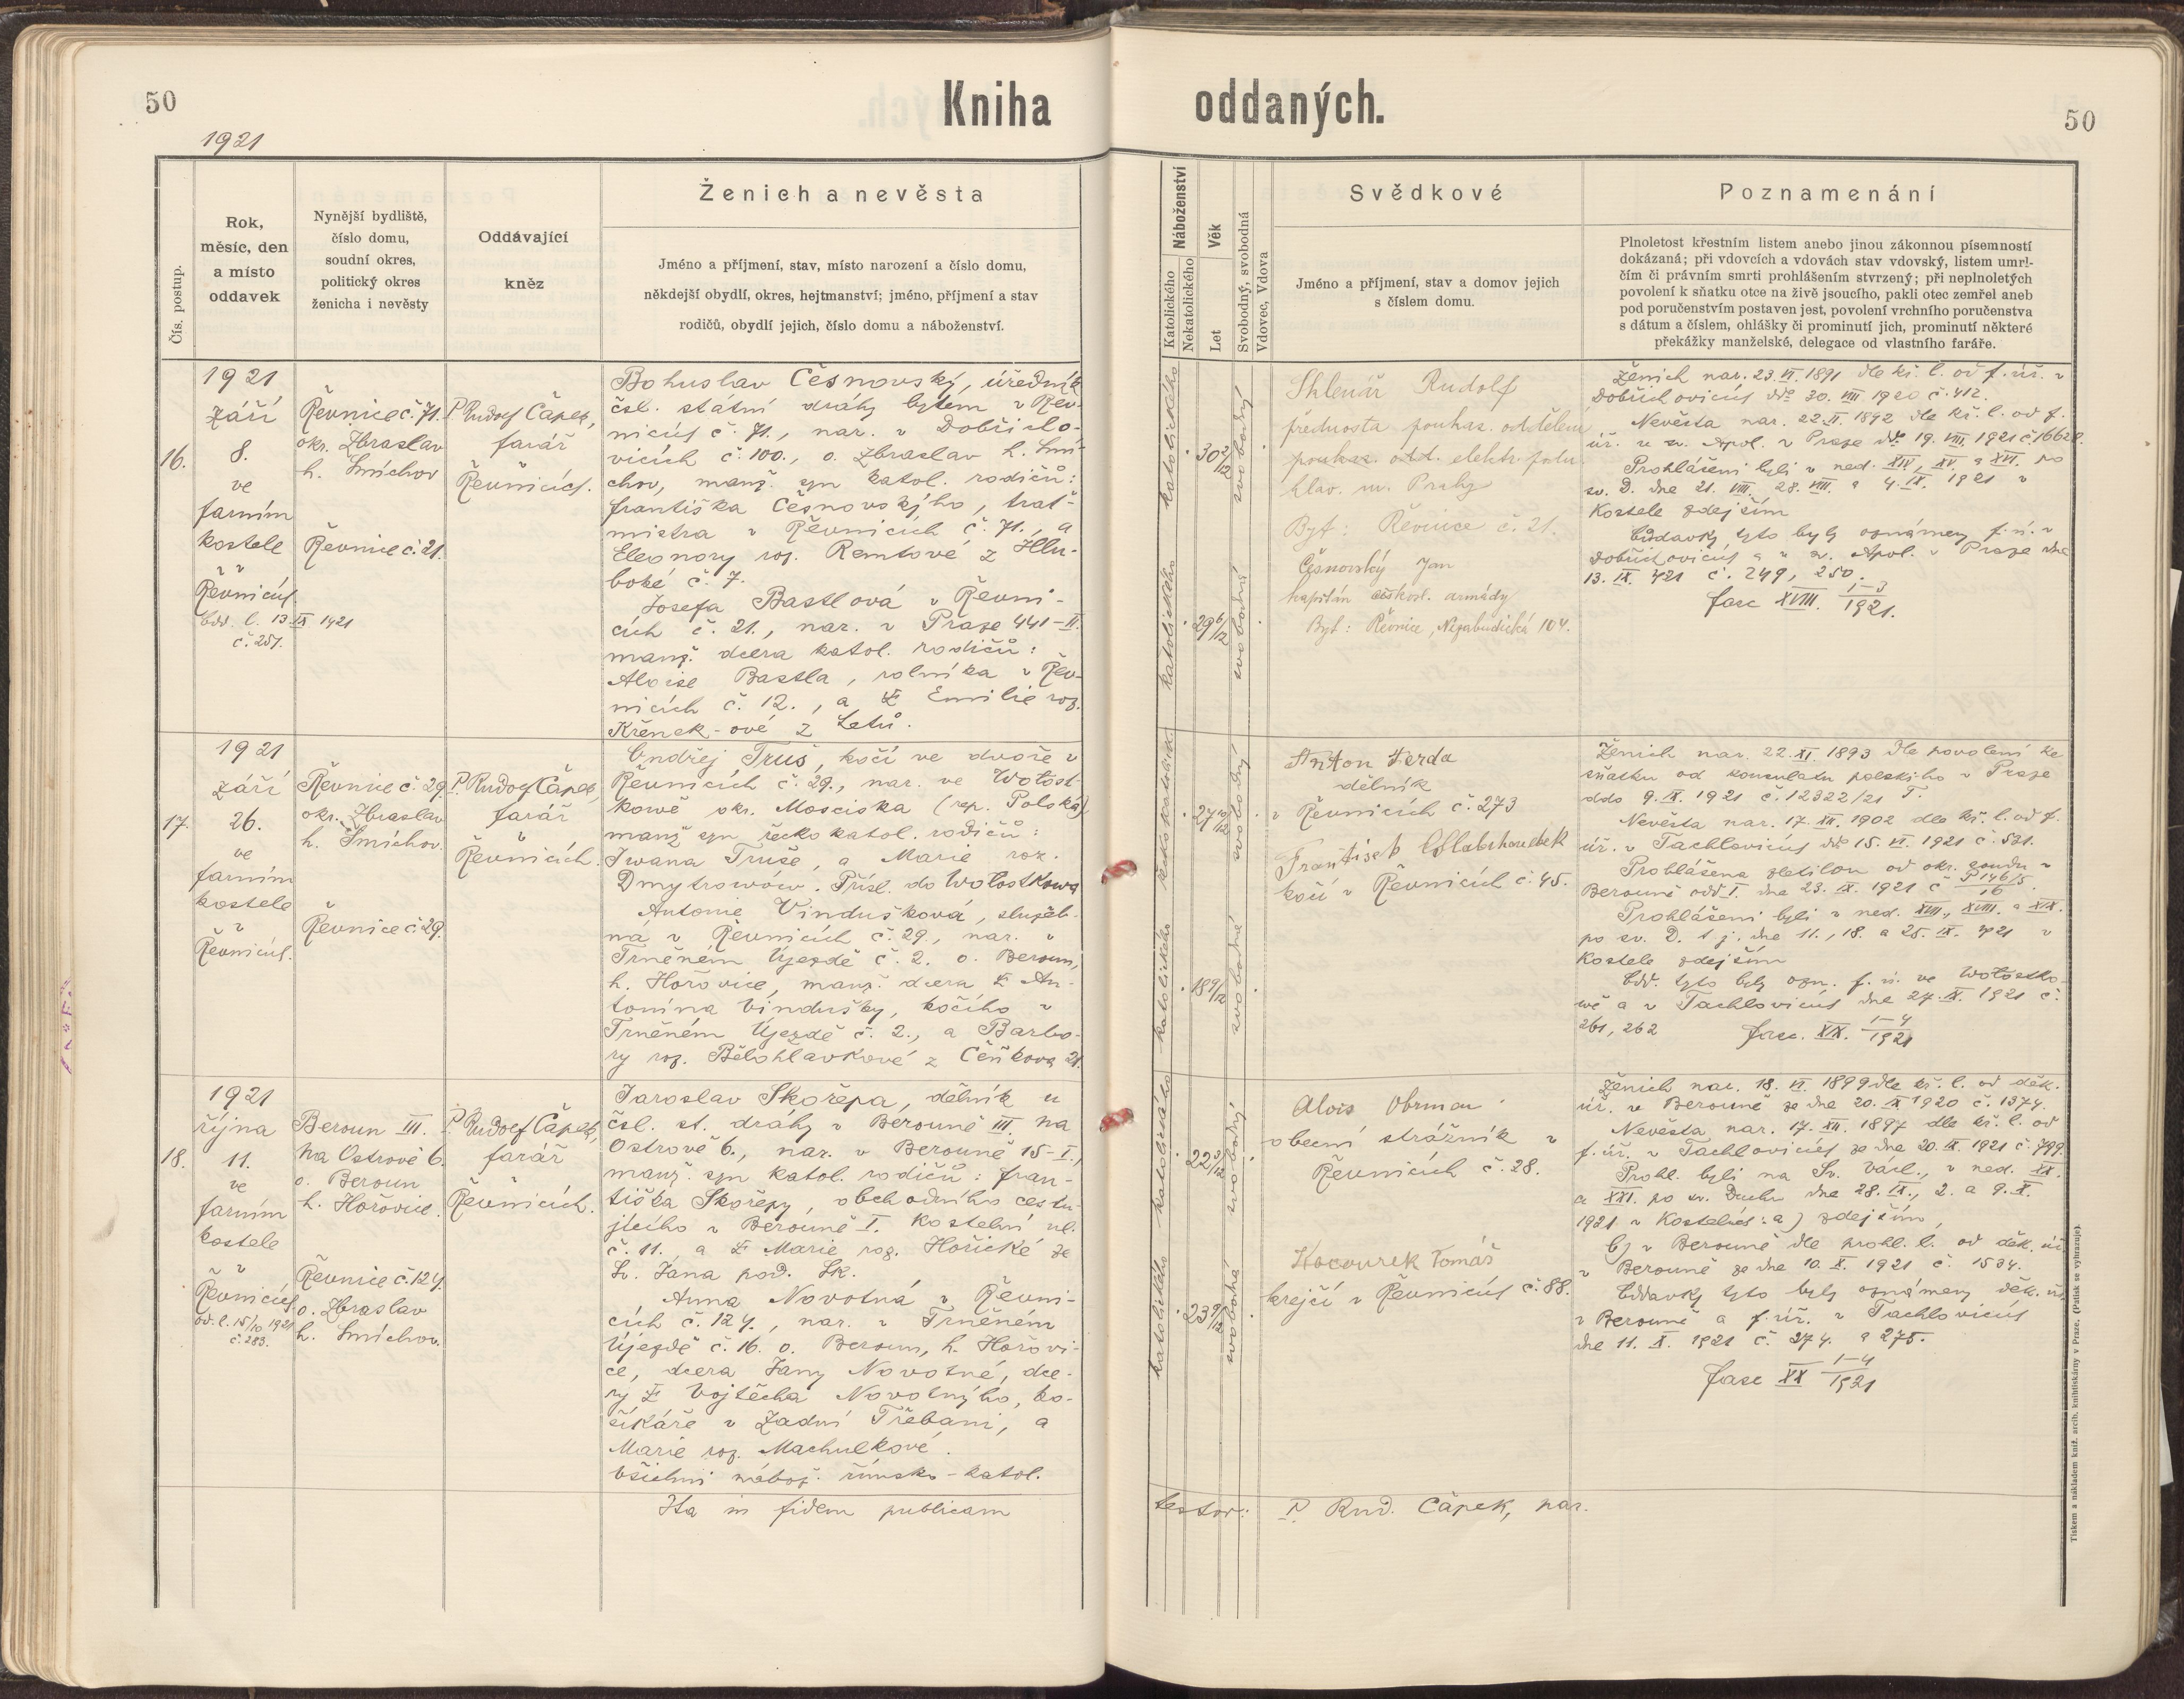 50
Kniha oddaných.
50
1921
Čís. postup.
Rok,
měsíc, den
a místo
oddavek
Nynější bydliště,
číslo domu,
soudní okres,
politický okres
ženicha i nevěsty
Oddávající
kněz
Ženich a nevěsta
Jméno a příjmení, stav, místo narození a číslo domu,
někdejší obydlí, okres, hejtmanství; jméno, příjmení a stav
rodičů, obydlí jejich, číslo domu a náboženství.
Náboženství
Katolického
Nekatolického
Věk
Let
Svobodný, svobodná
Vdovec, Vdova
Svědkové
Jméno a příjmení, stav a domov jejich
s číslem domu.
Poznamenání
Plnoletost křestním listem anebo jinou zákonnou písemností
dokázaná; při vdovcích a vdovách stav vdovský, listem umrl-
čím či právním smrti prohlášením stvrzený; při neplnoletých
povolení k sňatku otce na živě jsoucího, pakli otec zemřel aneb
pod poručenstvím postaven jest, povolení vrchního poručenstva
s dátum a číslem, ohlášky či prominutí jich, prominutí některé
překážky manželské, delegace od vlastního faráře.
16.
1921
září
8.
ve
farním
kostele
v
Řevnicích.
Odd. l. 13 IX 1921
č. 257.
Řevnice č. 71.
okr. Zbraslav
h. Smíchov
Řevnice č. 21.
P. Rudolf Čápek,
farář
v
Řevnicích.
Bohuslav Česnovský, úředník
čsl. státní dráhy bytem v Řev-
nicích č. 71., nar. v Dobřicho-
vicích č. 100., o. Zbraslav h. Smí-
chov, manž. syn katol. rodičů:
Františka Česnovského, trať-
mistra v Řevnicích č. 71., a
Eleonory roz. Remtové z Hlu-
boké č. 7.
Josefa Bastlová v Řevni-
cích č. 21., nar. v Praze 441-II.
manž. dcera katol. rodičů:
Aloise Bastla, rolníka v Řev-
nicích č. 12., a Emilie roz.
Křenek-ové z Letů.
katolického
katolického
30 2/12
29 6/12
svobodný
svobodná
Sklenář Rudolf
přednosta poukaz. oddělení
poukaz. odd. elektr. podn.
hlav. m. Prahy
Byt: Řevnice č. 21.
Česnovský Jan
kapitán českosl. armády
Byt: Řevnice, Nezabudická 104.
Ženich nar. 23. VI. 1891 dle kř. l. od f. úř. v
Dobřichovicích ddo 30. VIII 1920 č. 412.
Nevěsta nar. 22. II. 1892 dle kř. l. od f.
úř. u sv. Apol. v Praze ddo 19. VIII. 1921 č. 1662.
Prohlášeni byli v ned. XIV, XV. a XVI. po
sv. D. dne 21. VIII. 28. VIII. a 4. IX. 1921 v
kostele zdejším
Oddavky tyto byly oznámeny f. ú. v
Dobřichovicích a u sv. Apol. v Praze dne
13. IX. 921 č. 249, 250.
fasc XVIII. 1-3/1921.
17.
1921
září
26.
ve
farním
kostele
v
Řevnicích.
Řevnice č. 29
okr. Zbraslav
h. Smíchov.
Řevnice č. 29.
P. Rudolf Čápek,
farář
v
Řevnicích.
Ondřej Truš, kočí ve dvoře v
Řevnicích č. 29., nar. ve Wołost-
kowě okr. Mosciska (rep. Polská)
manž syn řeckokatol. rodičů:
Iwana Truše, a Marie roz.
Dmytrowów. Přísl. do Wołostkowa
Antonie Vindušková, služeb-
ná v Řevnicích č. 29., nar. v
Trněném Újezdě č. 2. o. Beroun,
h. Hořovice, manž. dcera An-
tonína Vindušky, kočího v
Trněném Újezdě č. 2., a Barbo-
ry roz. Bělohlávkové z Čeňkova 21.
řeckokatolick.
katolického
27 10/12
18 9/12
svobodný
svobodná
Anton Ferda
dělník
v Řevnicích č. 273
František
kočí v Řevnicích č. 45.
Ženich nar. 22. XI. 1893 dle povolení ke
sňatku od konsulatu polského v Praze
ddo 9. IX. 1921 č. 12322/21 T.
Nevěsta nar. 17. XII. 1902 dle kř. l. od f.
úř. v Tachlovicích ddo 15. VI. 1921 č. 521.
Prohlášena zletilou od okr. soudu v
Berouně odd I. dne 23. IX. 1921 č P 146/5/16.
Prohlášeni byli v ned. XVII., XVIII. a XIX.
po sv. D. t j. dne 11., 18. a 25. IX. 921 v
kostele zdejším
Odd. tyto byly ozn. f. ú. ve Wołostko-
wě a v Tachlovicích dne 27. IX. 1921 č.
261, 262 fasc. XIX. 1-4/1921
18.
1921
října
11.
ve
farním
kostele
v
Řevnicích
od. l. 15/10 1921
č. 283.
Beroun III.
Na Ostrově 6.
o. Beroun
h. Hořovice.
Řevnice č. 124.
o. Zbraslav
h. Smíchov.
P. Rudolf Čápek,
farář
v
Řevnicích.
Jaroslav Skořepa, dělník u
čsl. st. dráhy v Berouně III. na
Ostrově 6., nar. v Berouně 15-I.,
manž. syn katol. rodičů: Fran-
tiška Skořepy, obchodního cestu-
jícího v Berouně I. Kostelní ul.
č. 11., a Marie roz. Hořické ze
Sv. Jana pod. Sk.
Anna Novotná v Řevni-
cích č. 124., nar. v Trněném
Újezdě č. 16. o. Beroun, h. Hořovi-
ce, dcera Jany Novotné, dce-
ry Vojtěcha Novotného, ko-
šíkáře v Zadní Třebani, a
Marie roz. Machulkové.
Všichni nábož. římsko-katol.
katolického
katolického
22 3/12
23 9/12
svobodný
svobodná
Alois Obrman
obecní strážník v
Řevnicích č. 28.
Kocourek Tomáš
krejčí v Řevnicích č. 88.
Ženich nar. 18. VI. 1899 dle kř. l. od děk.
úř. v Berouně ze dne 20. IX 1920 č. 1374.
Nevěsta nar. 17. XII. 1897 dle kř. l. od
f. úř. v Tachlovicích ze dne 20. IX 1921 č. 799.
Prohl. byli na Sv. Václ., v ned. XX.
a XXI. po sv. Duchu dne 28. IX., 2. a 9. X.
1921 v kostelích: a) zdejším,
b) v Berouně dle prohl. l. od děk. úř.
v Berouně ze dne 10. X. 1921 č. 1534.
Oddavky tyto byly oznámeny děk. úř.
v Berouně a f. úř. v Tachlovicích
dne 11. X. 1921 č. 274. a 275.
fasc XX 1-4/1921
Ita in fidem publicam testor: P. Rud. Čápek, par.
Tiskem a nákladem kníž. arcib. knihtiskárny v Praze. (Patisk se vyhrazuje).